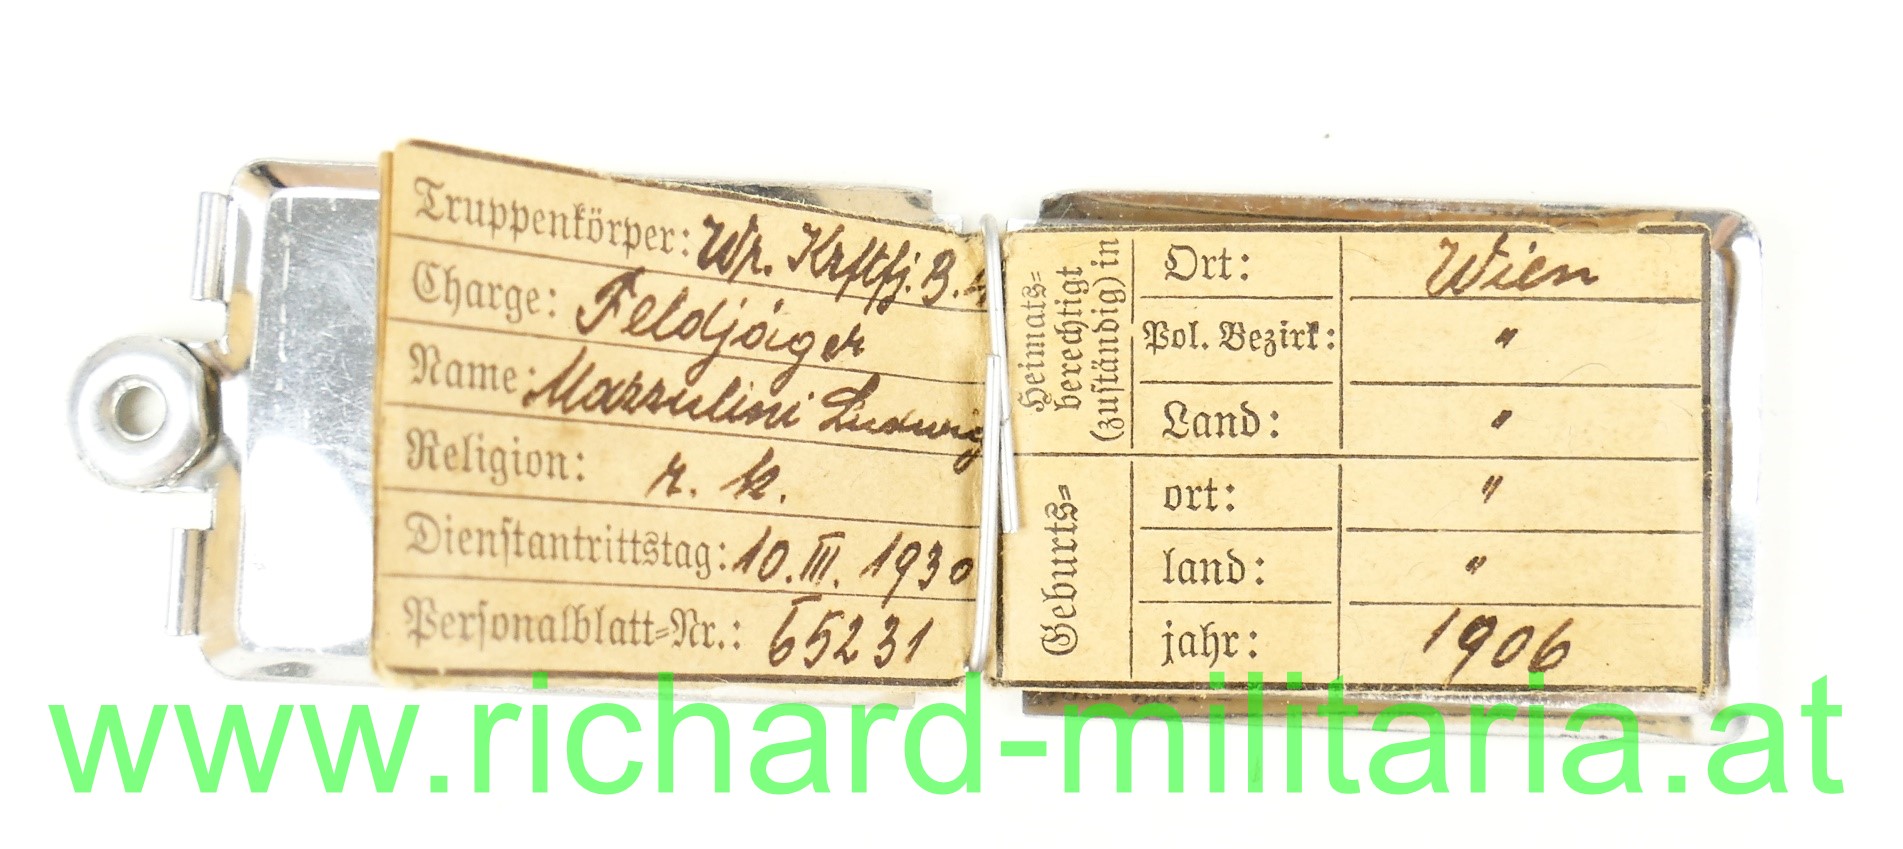 Truppenkörper: Wr. Krftfj. B.
Charge: Feldjäger
Name: Mazzulini Ludwig
Religion: r. k.
Dienstantrittstag: 10. III. 1930
Personalblatt-Nr.: 65231
Heimats-
berechtigt
(zuständig) in
Ort: Wien
Pol. Bezirk: "
Land: "
Geburts-
ort: "
land: "
jahr: 1906
www.richard-militaria.at